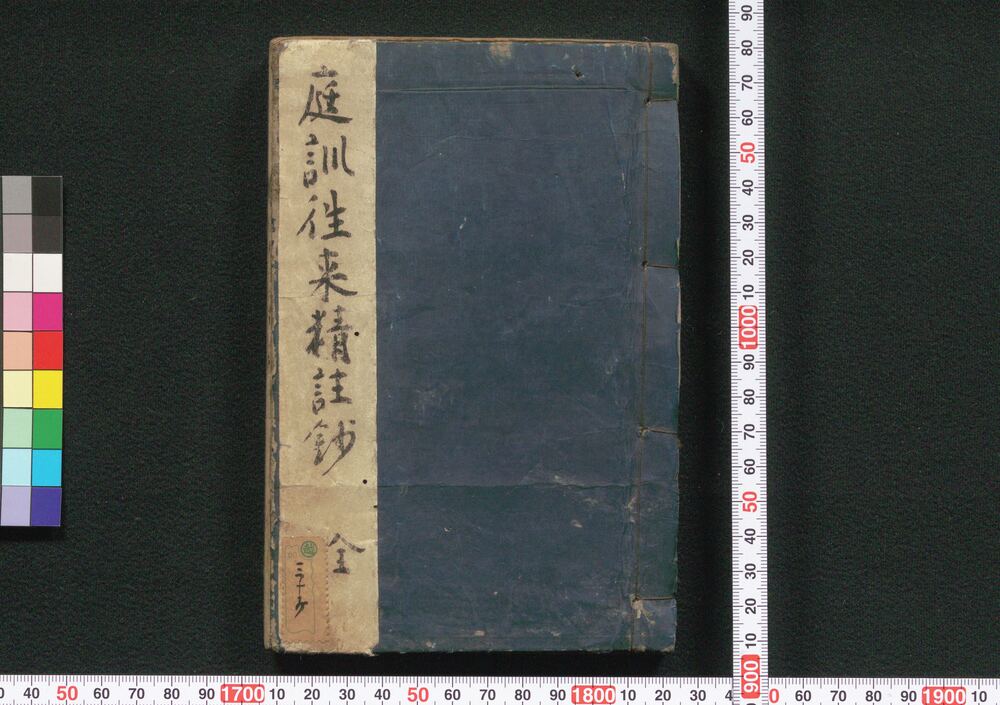 庭訓往来精註鈔 全
90
80
70
60
50
40
30
20
10
1000
90
80
70
60
50
40
30
20
10
900
40 50 60 70 80 90 1700 10 20 30 40 50 60 70 80 90 1800 10 20 30 4 0 60 70 80 90 1900 10